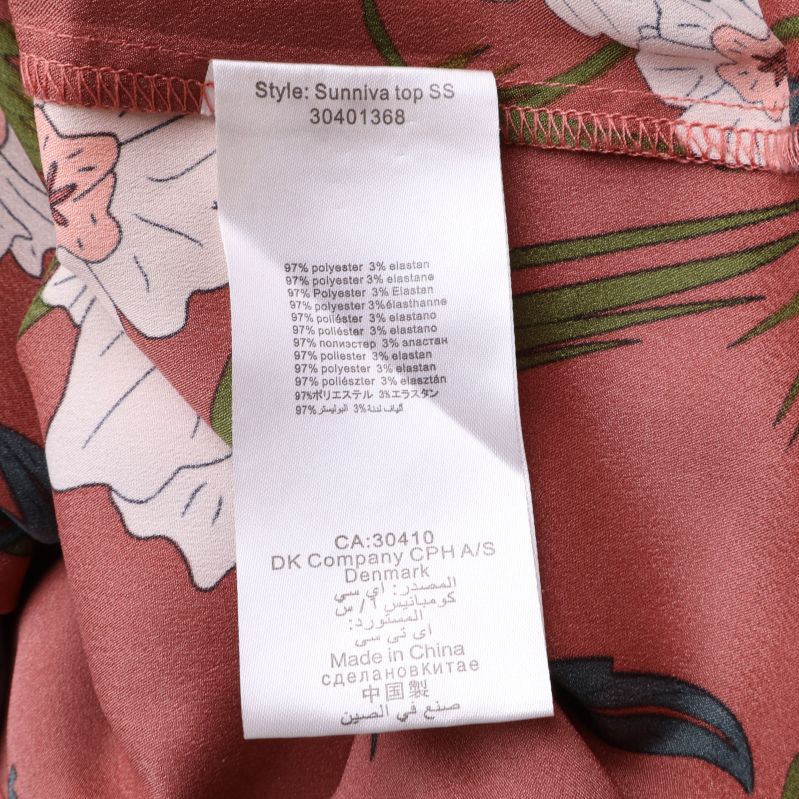 Style: Sunniva top SS
30401368
97% polyester 3% elastan
97% polyester 3% elastane
97% Polyester 3% Elastan
97% polyester 3%élasthanne
97% poliéster 3% elastano
97% poliéster 3% elastano
97% полиэстер 3% эластан
97% poliester 3% elastan
97% poliészter 3% elasztán
97%ポリエステル 3%エラスタン
97% البوليستر 3% ألياف لدنة
CA:30410
DK Company CPH A/S
Denmark
المصدر: أي سي
كومبانيس ١/ س
المستورد:
اي تي سي
Made in China
сделановКитае
中国製
صنع في الصين